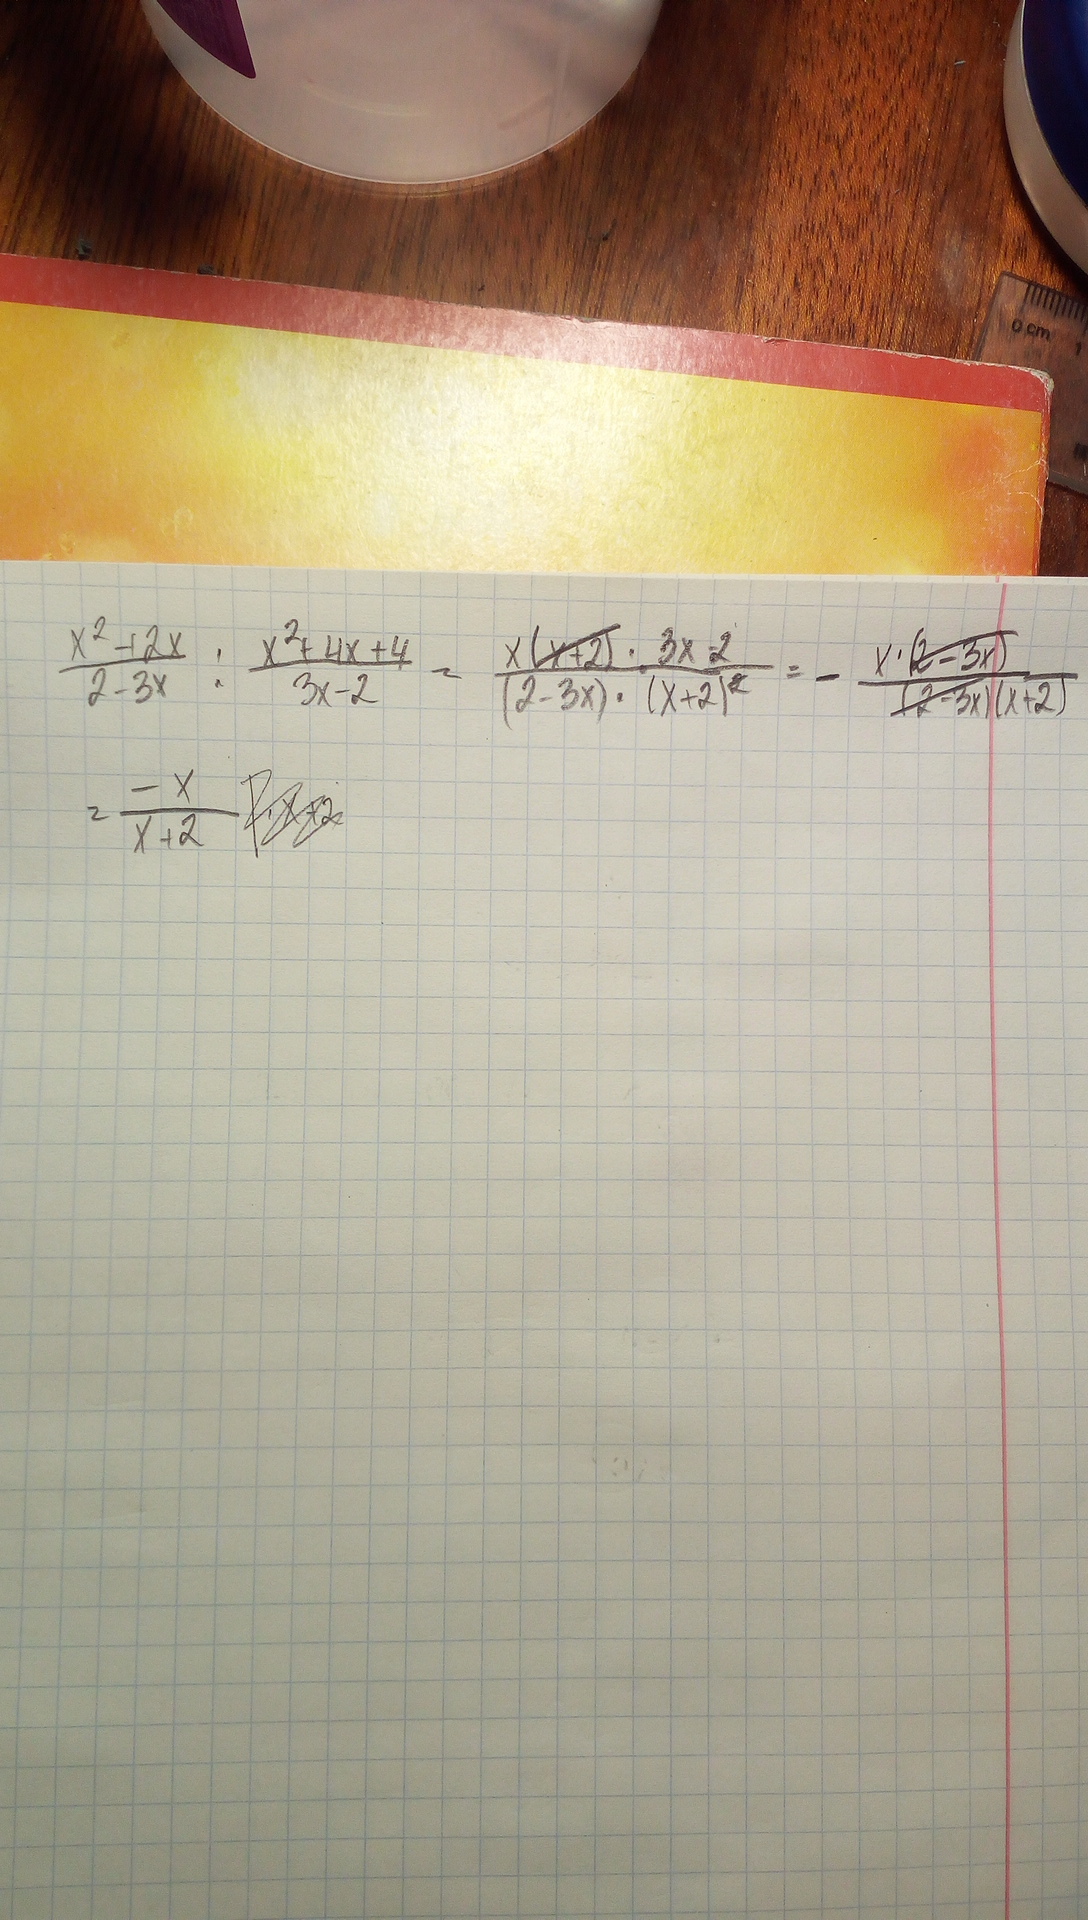 0 cm 1
x² + 2x / 2 - 3x : x² + 4x + 4 / 3x - 2 = x(x+2) · 3x - 2 / (2 - 3x) · (x+2)² = - x · (2 - 3x) / (2 - 3x)(x+2)
= -x / x+2